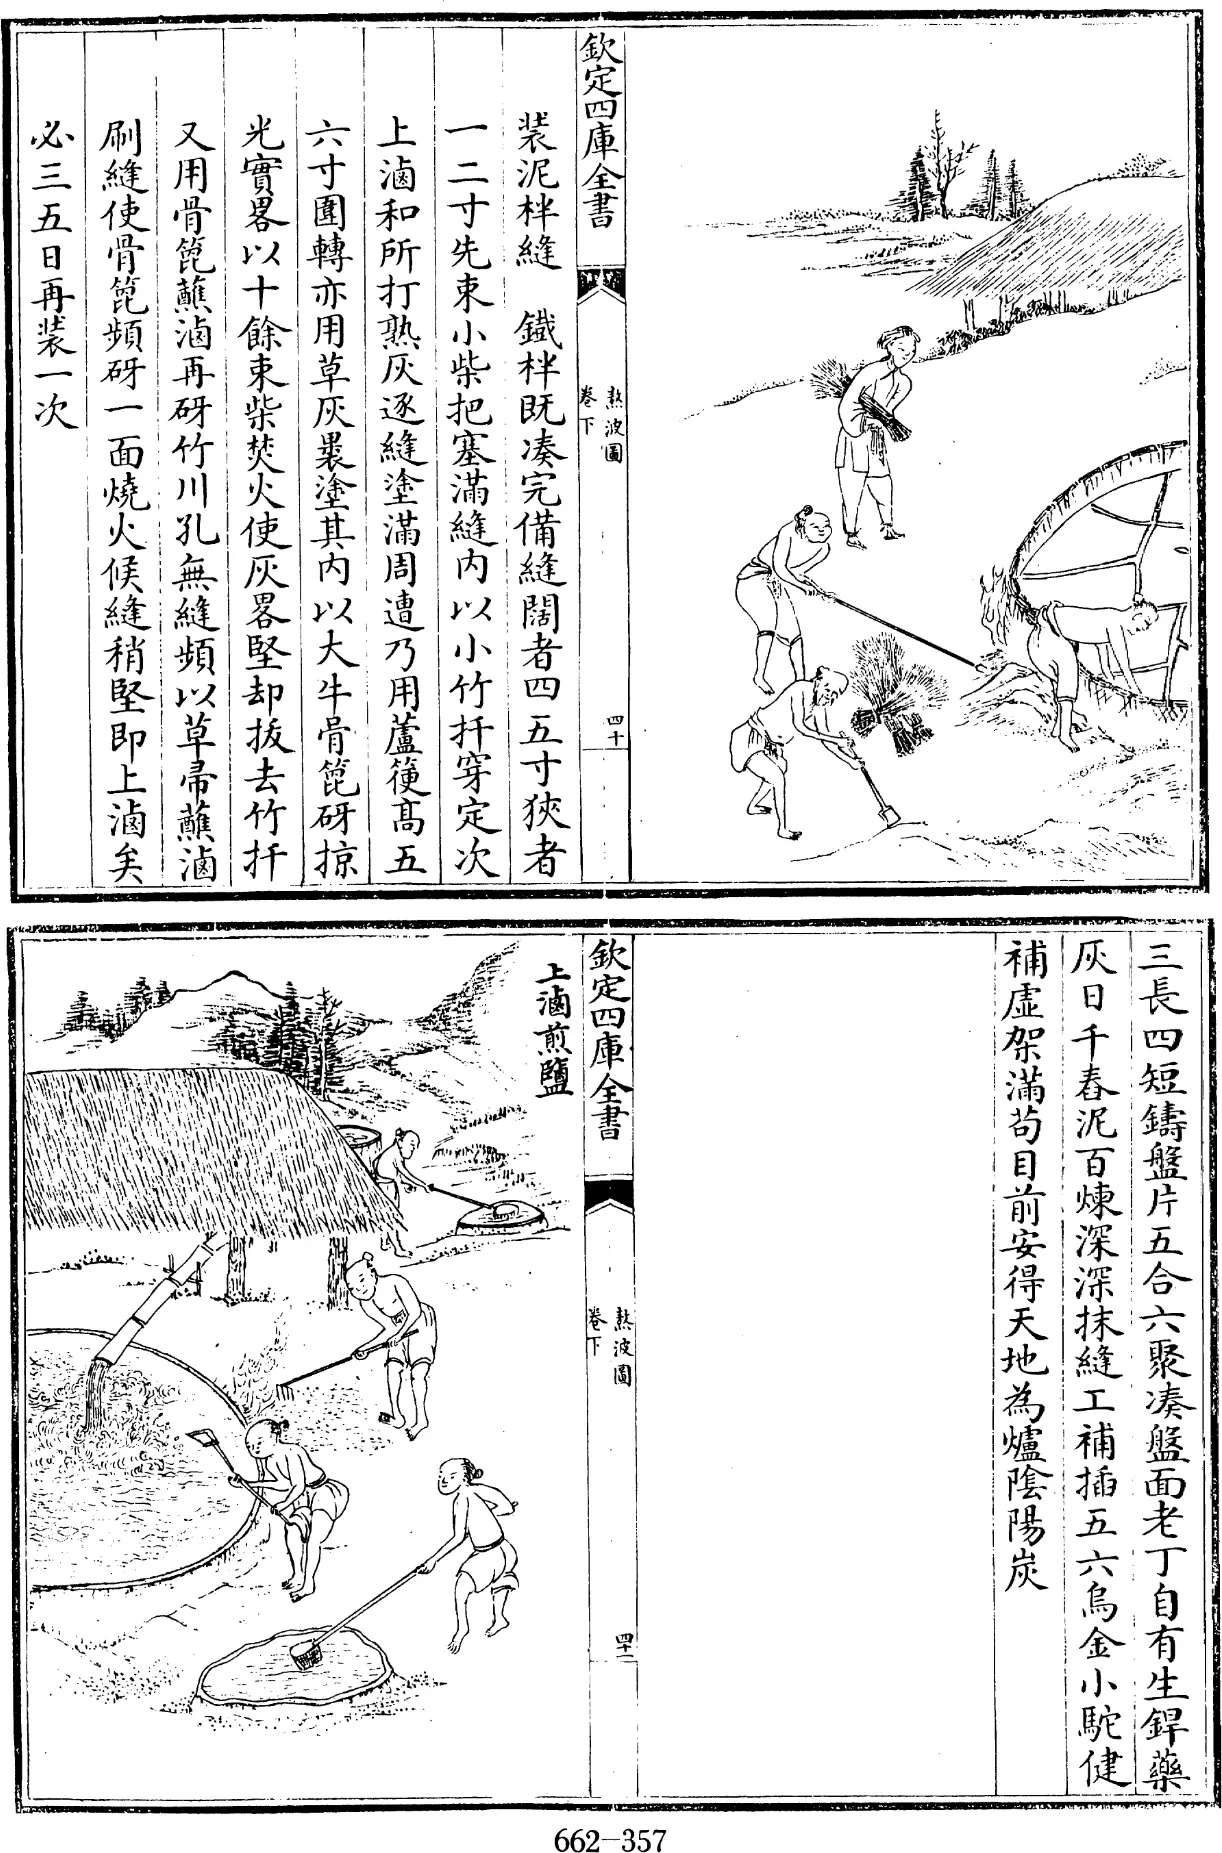 欽定四庫全書
熬波圖
卷下
四十
装泥柈縫　鐵柈既湊完備縫闊者四五寸狹者
一二寸先束小柴把塞滿縫内以小竹扦穿定次
上滷和所打熟灰逐縫塗滿周遭乃用蘆箯髙五
六寸圍轉亦用草灰褁塗其内以大牛骨篦砑掠
光實畧以十餘束柴焚火使灰畧堅却拔去竹扦
又用骨篦蘸滷再砑竹川孔無縫頻以草帚蘸滷
刷縫使骨篦頻砑一面燒火候縫稍堅即上滷矣
必三五日再装一次
三長四短鑄盤片五合六聚湊盤面老丁自有生銲藥
灰日千舂泥百煉深深抹縫工補插五六烏金小駝健
補虛架滿茍目前安得天地為爐隂陽炭
欽定四庫全書
熬波圖
卷下
四十一
上滷煎鹽
662-357